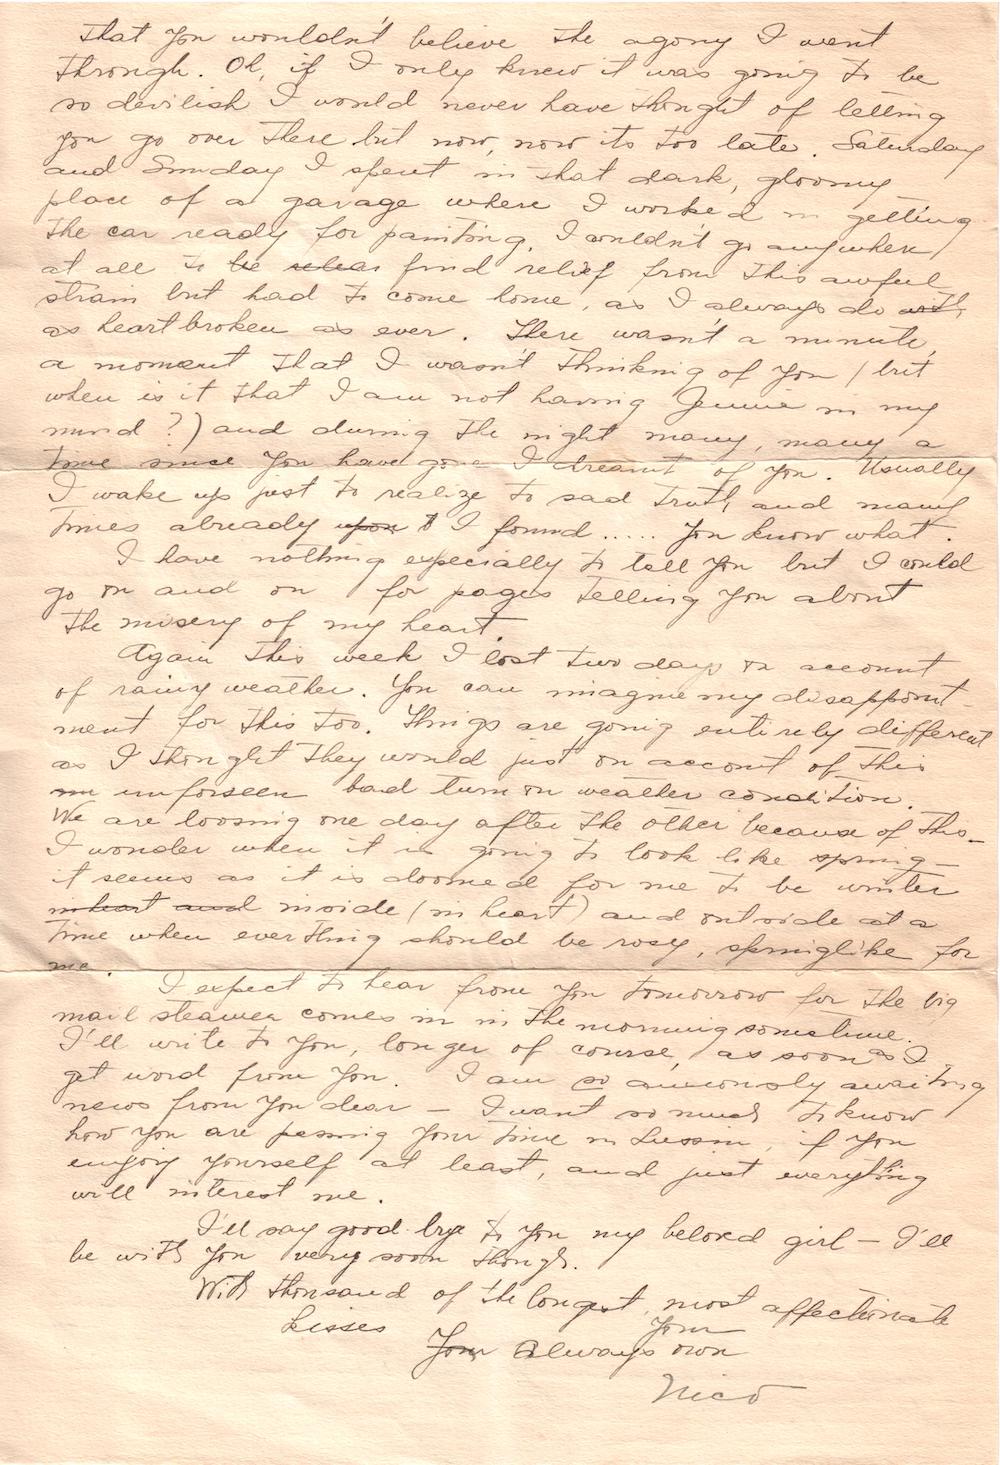 that you wouldn't believe the agony I went
through. Oh, if I only knew it was going to be
so devilish I would never have thought of letting
you go over there but now, now its too late. Saturday
and Sunday I spent in that dark, gloomy
place of a garage where I worked in getting
the car ready for painting. I couldn't go anywhere
at all to be find relief from this awful
strain but had to come home, as I always do with,
as heartbroken as ever. There wasn't a minute,
a moment that I wasn't thinking of you (but
when is it that I am not having in my
mind?) and during the night many, many a
time since you have gone I dreamt of you. Usually
I wake up just to realize to sad truth and many
times already upon I found ..... you know what.
I have nothing especially to tell you but I could
go on and on for pages telling you about
the misery of my heart.
Again this week I lost two days on account
of rainy weather. You can imagine my disappoint-
ment for this too. Things are going entirely different
as I thought they would just on account of this
unforseen bad turn on weather condition.
We are loosing one day after the other because of this -
I wonder when it is going to look like spring -
it seems as it is doomed for me to be winter
in heart and inside (in heart) and outside at a
time when everthing should be rosy, springlike for
me.
I expect to hear from you tomorrow for the big
mail steamer comes in in the morning sometime.
I'll write to you, longer of course, as soon as I
get word from you. I am so anxiously awaiting
news from you dear - I want so much to know
how you are passing your time in Lussin, if you
enjoy yourself at least, and just everything
will interest me.
I'll say good-bye to you my beloved girl - I'll
be with you very soon though.
With thousand of the longest, most affectionate
kisses Your
Your always own
Nico